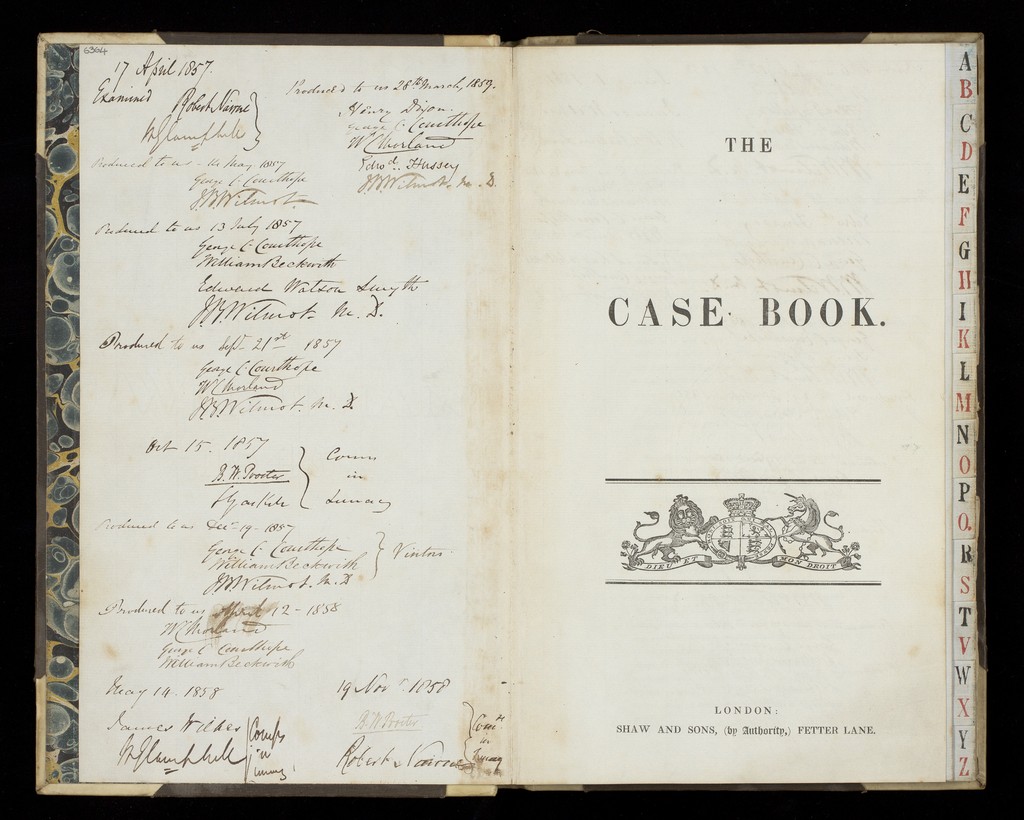 6364
17 April 1857.
Examined
Robert Nairne
W G Campbell
Produced to us 14 May 1857
George C. Courthope
J.B. Wilmot
Produced to us 13 July 1857
George C. Courthope
William Beckwith
Edward Watson Smyth
J.B. Wilmot. M. D.
Produced to us Sept. 21st 1857
George C. Courthope
W C Morland
J.B. Wilmot. M. D.
Oct 15. 1857
B. W. Procter
Comrs
in
Lunacy
Produced to us Decr 19 - 1857
George C. Courthope
William Beckwith
J.B. Wilmot. M. D
Visitors
Produced to us April 12 - 1858
W C Morland
George C Courthope
William Beckwith
May 14. 1858
James Wilkes
W G Campbell
Comrs
in
Lunacy
Produced to us 28th March, 1859.
Henry Dixon.
George C. Courthope
W C Morland
Edwd. Hussey
J.B. Wilmot. M. D.
19 Novr. 1858
B. W. Procter
Robert Nairne
Comrs
in
Lunacy
THE
CASE BOOK.
DIEU ET MON DROIT
LONDON:
SHAW AND SONS, (by Authority,) FETTER LANE.
A
B
C
D
E
F
G
H
I
K
L
M
N
O
P
Q.
R
S
T
V
W
X
Y
Z